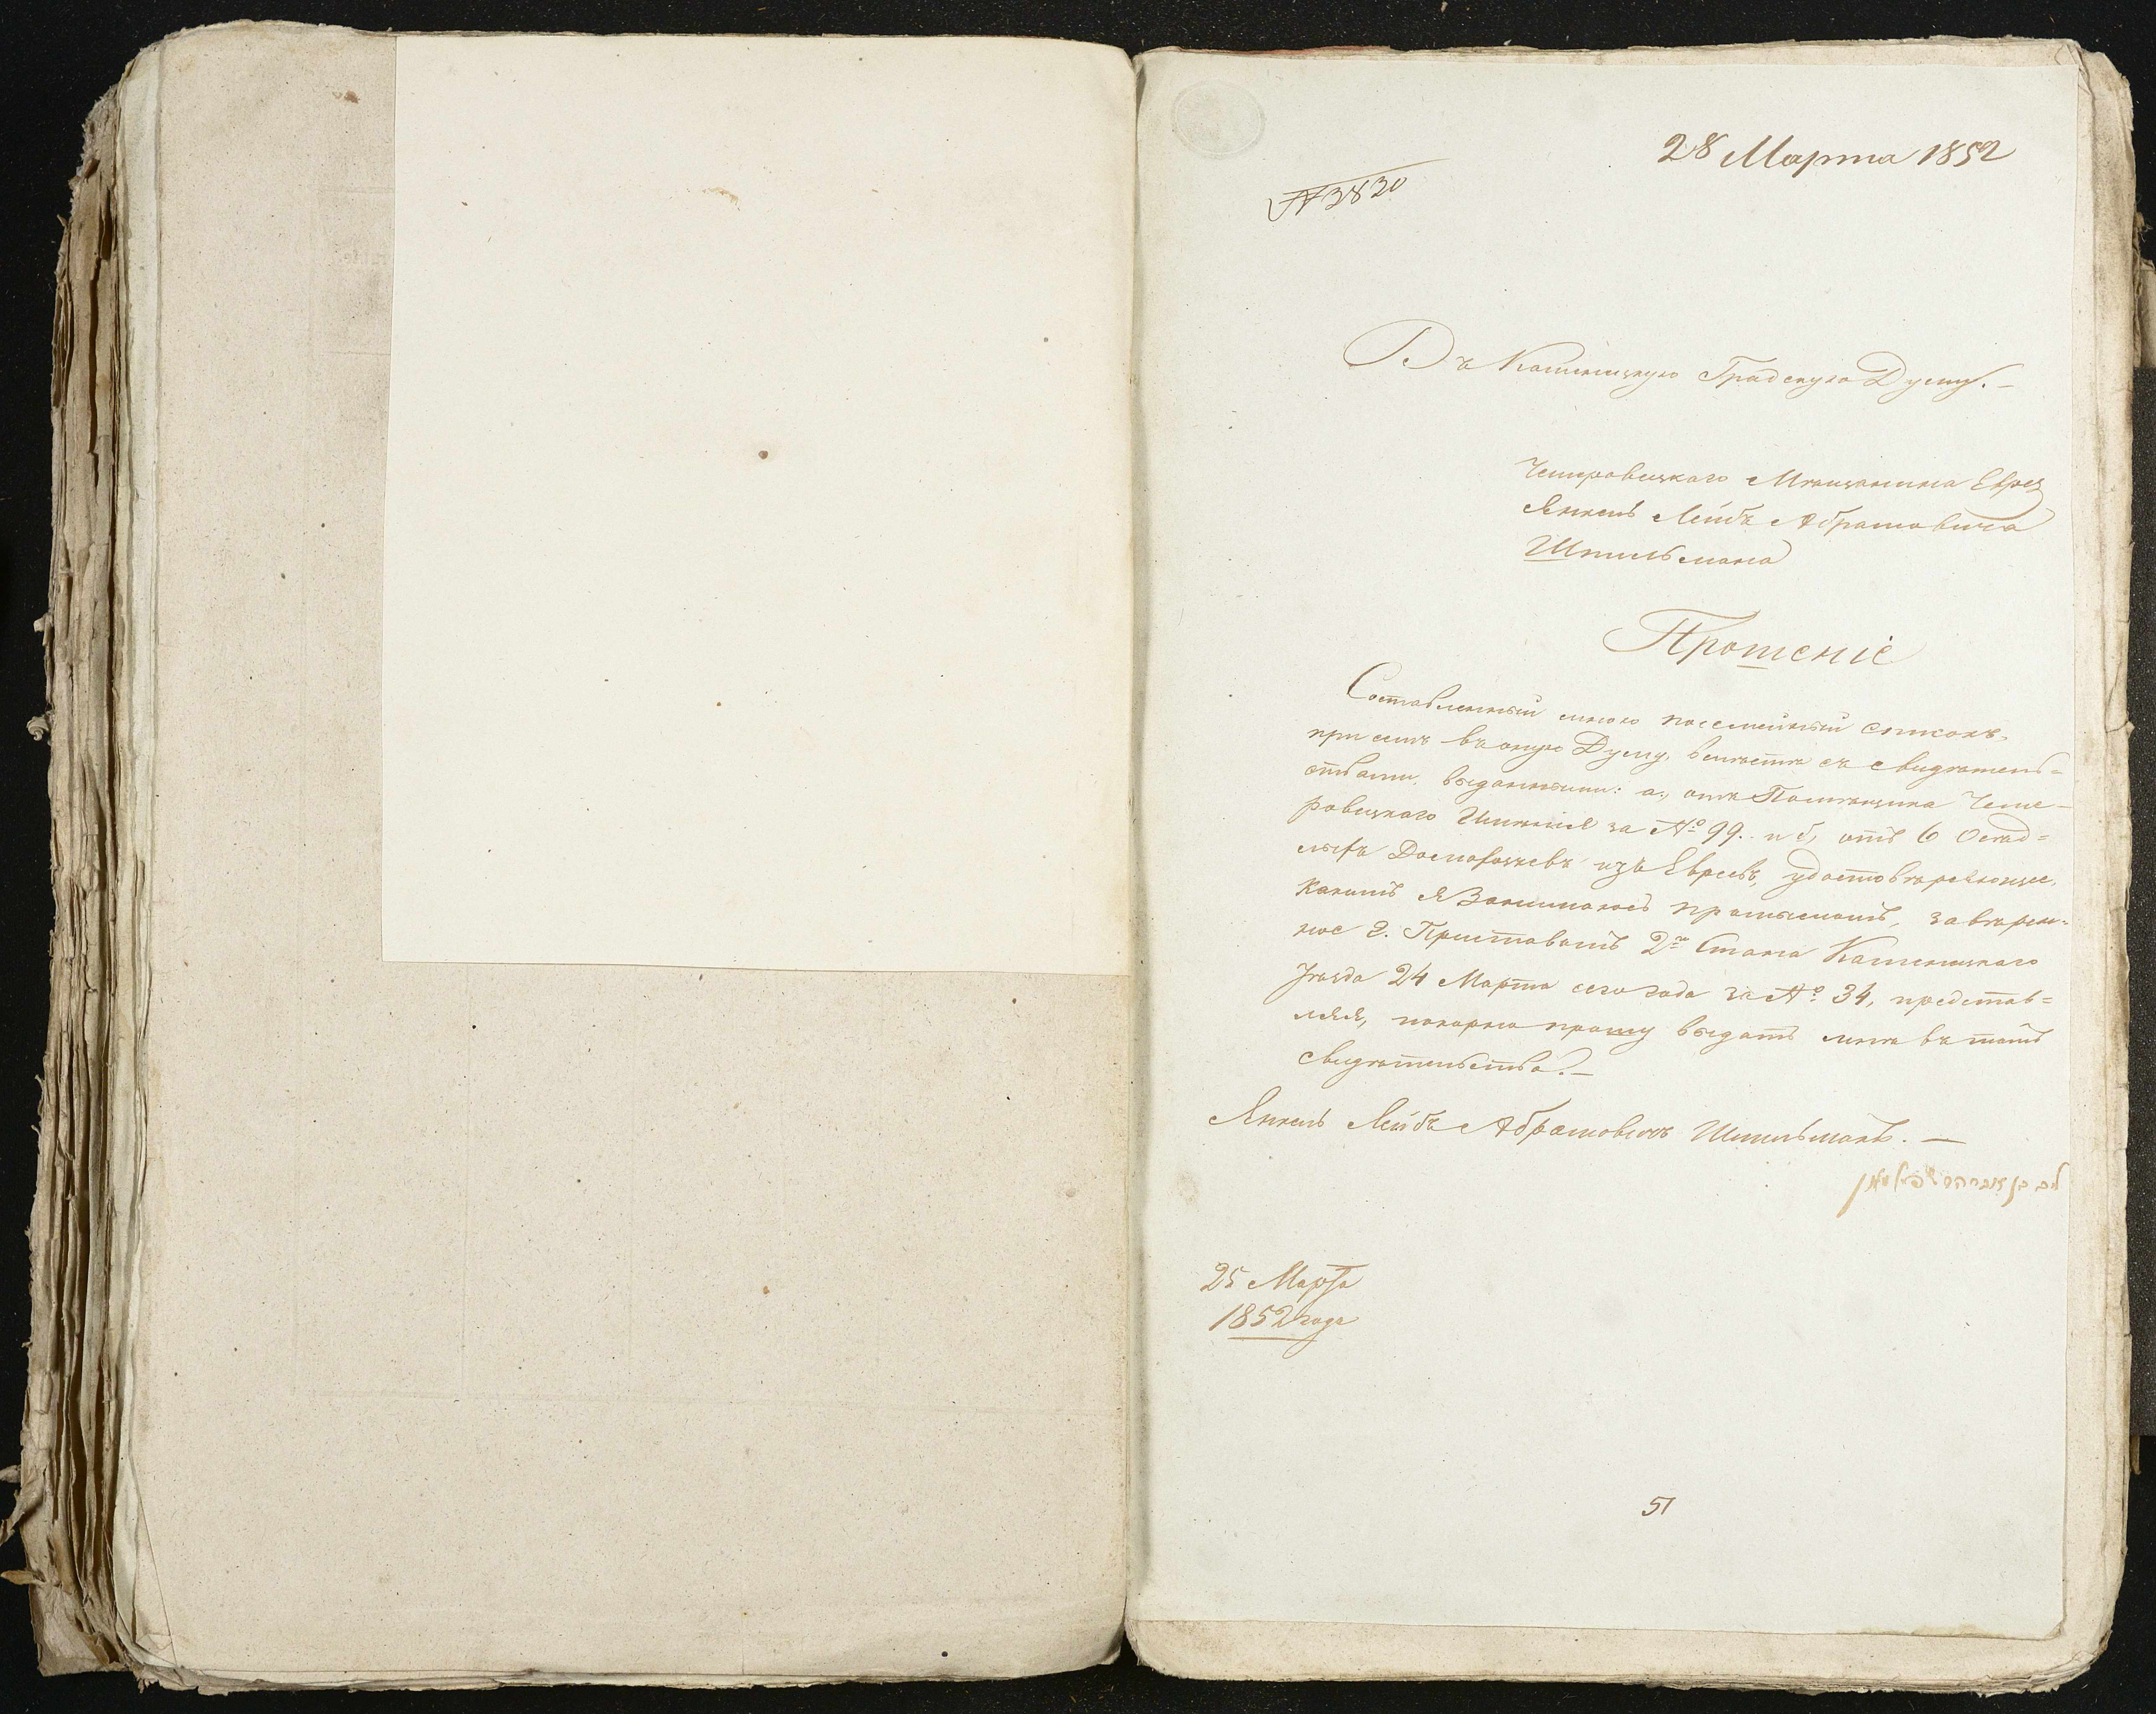 28 Марта 1852
№ 3830
Въ Каменецкую Градскую Думу.–
Чемеровецкаго Мѣщанина Еврея
Янкель Лейбъ Абрамовича
Шпильмана
Прошеніе
Составленный мною посемейный списокъ,
при семъ въ оную Думу, вмѣстѣ съ свидѣтель=
ствами, выданными: а, отъ Помѣщика Чеме–
ровецкаго Имѣнія за № 99. и б, отъ 6 Осѣд=
лыхъ Домохозяевъ изъ Евреевъ, удостовѣряющее,
какимъ я занимаюсь промысломъ, завѣрен=
ное Г. Приставомъ 2го Стана Каменецкаго
Уѣзда 24 Марта сего года за № 34, представ=
ляя, покорно прошу выдать мнѣ въ томъ
свидѣтельство.–
Янкель Лейбъ Абрамовичъ Шпильманъ.—
ליב בן אברהם שפילמאן
25 Марта
1852 года
51